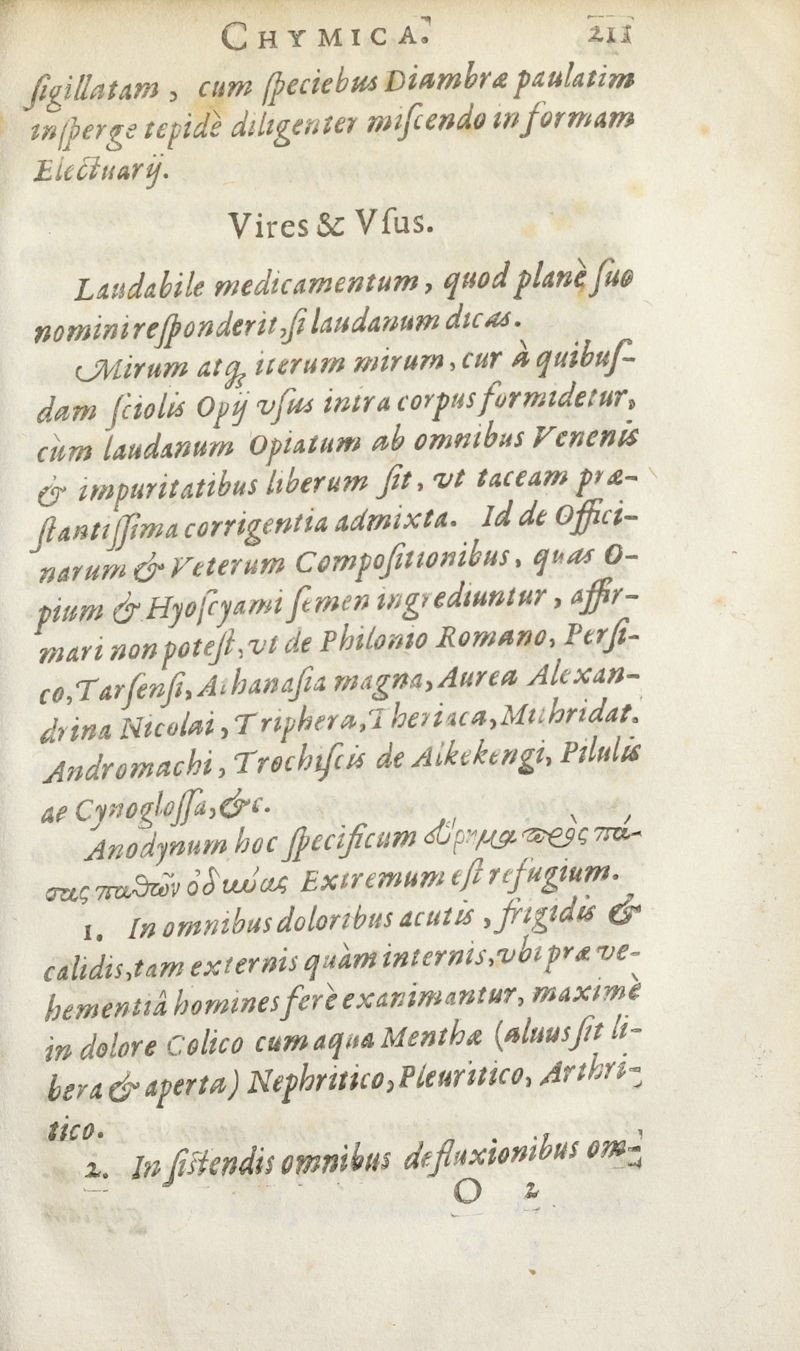 CHYMICA. 211
ſigillatam, cum ſpeciebus Diambræ paulatim
inſperge tepidè diligenter miſcendo in formam
Electuarij.
Vires & Vſus.
Laudabile medicamentum, quod planè ſuo
nomini reſponderit, ſi laudanum dicas.
Mirum atq; iterum mirum, cur à quibuſ-
dam ſciolis Opij vſus intra corpus formidetur,
cùm laudanum Opiatum ab omnibus Venenis
& impuritatibus liberum ſit, vt taceam præ-
ſtantiſſima corrigentia admixta. Id de Offici-
narum & Veterum Compoſitionibus, quas O-
pium & Hyoſcyami ſemen ingrediuntur, affir-
mari non poteſt, vt de Philonio Romano, Perſi-
co, Tarſenſi, Athanaſia magna, Aurea Alexan-
drina Nicolai, Triphera, Theriaca, Mithridat.
Andromachi, Trochiſcis de Alkekengi, Pilulis
de Cynogloſſa, &c.
Anodynum hoc ſpecificum πρὸς πά-
σας παθῶν ὀδύνας Extremum eſt refugium.
1. In omnibus doloribus acutis, frigidis &
calidis, tam externis quàm internis, vbi præ ve-
hementiâ homines ferè exanimantur, maximè
in dolore Colico cum aqua Menthæ (aluus ſit li-
bera & aperta) Nephritico, Pleuritico, Arthri-
tico.
2. In ſiſtendis omnibus defluxionibus om-
O 2